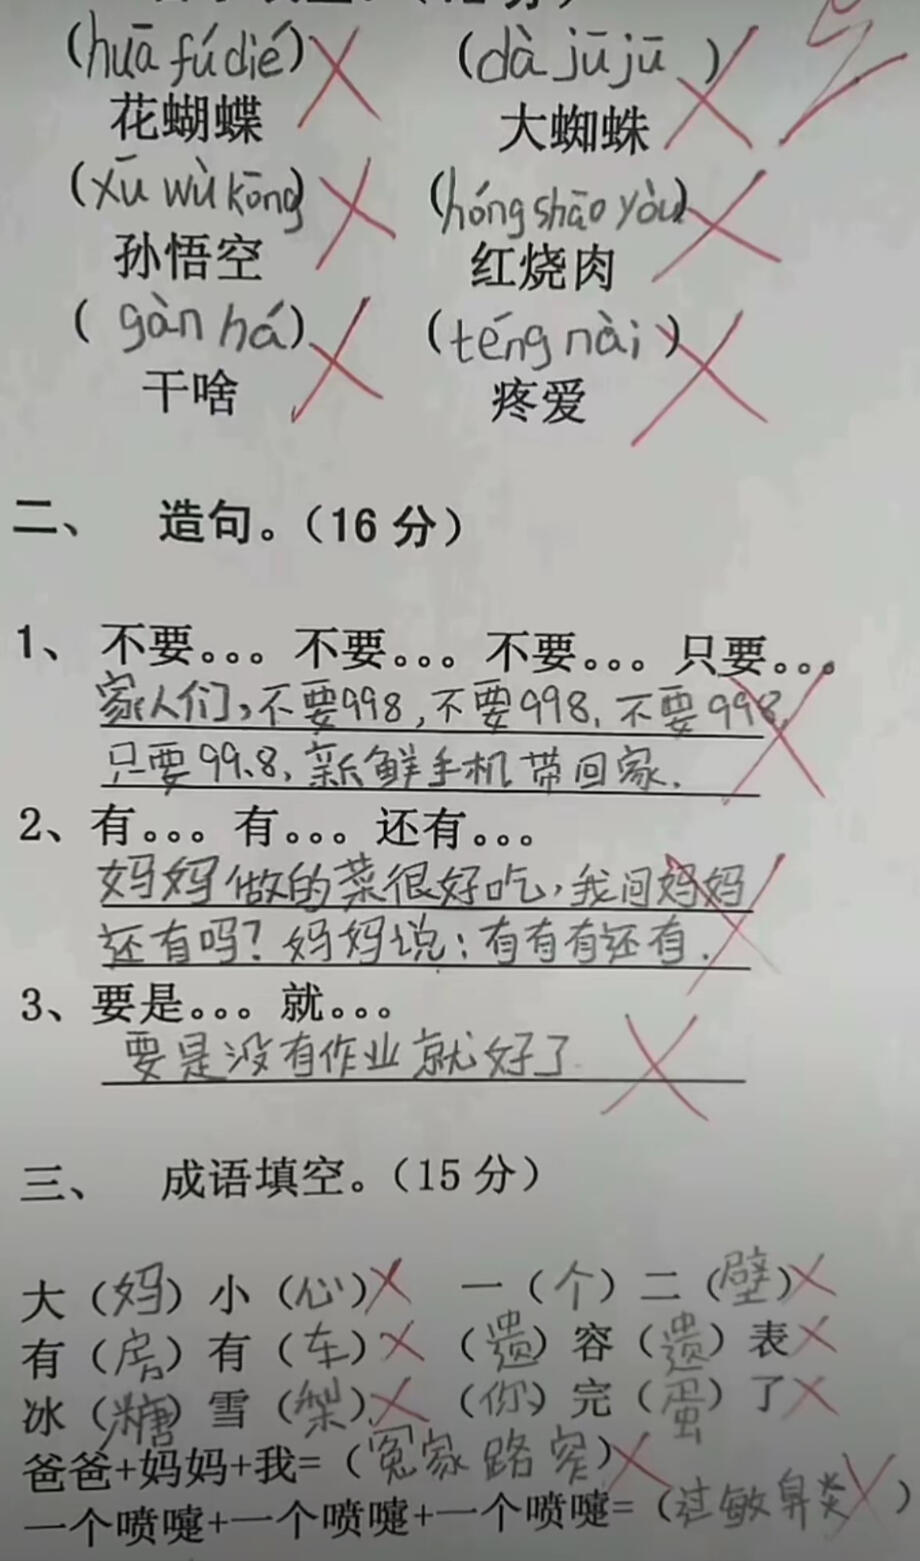 (huā fú dié) (dà jū jū )
花蝴蝶 大蜘蛛
(xū wù kōng) (hóng shāo yòu)
孙悟空 红烧肉
( gàn há) (téng nài )
干啥 疼爱
二、 造句。（16 分）
1、不要。。。不要。。。不要。。。只要。。。
家人们,不要998,不要998,不要998,
只要99.8,新鲜手机带回家.
2、有。。。有。。。还有。。。
妈妈做的菜很好吃,我问妈妈
还有吗?妈妈说:有有有还有.
3、要是。。。就。。。
要是没有作业就好了.
三、 成语填空。（15 分）
大（妈）小（心） 一（个）二（壁）
有（房）有（车） （遗）容（遗）表
冰（糖）雪（梨） （你）完（蛋）了
爸爸+妈妈+我=（冤家路窄）
一个喷嚏+一个喷嚏+一个喷嚏=（过敏鼻炎 ）